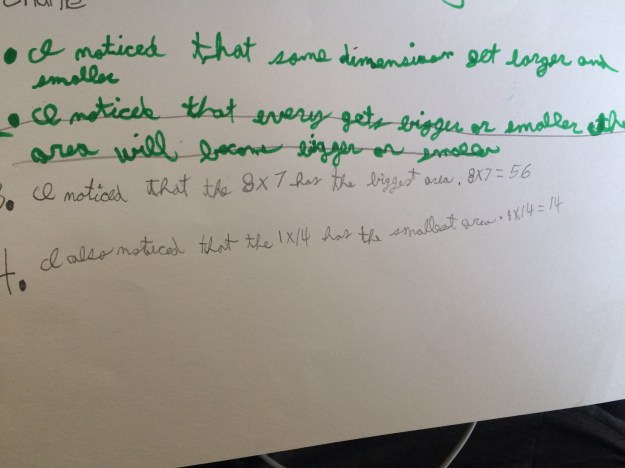 • I noticed that some dimension get larger and
smaller
• I noticed that every gets bigger or smaller the
area will become bigger or smaller
3. I noticed that the 8x7 has the biggest area. 8x7=56
4. I also noticed that the 1x14 has the smallest area. 1x14=14